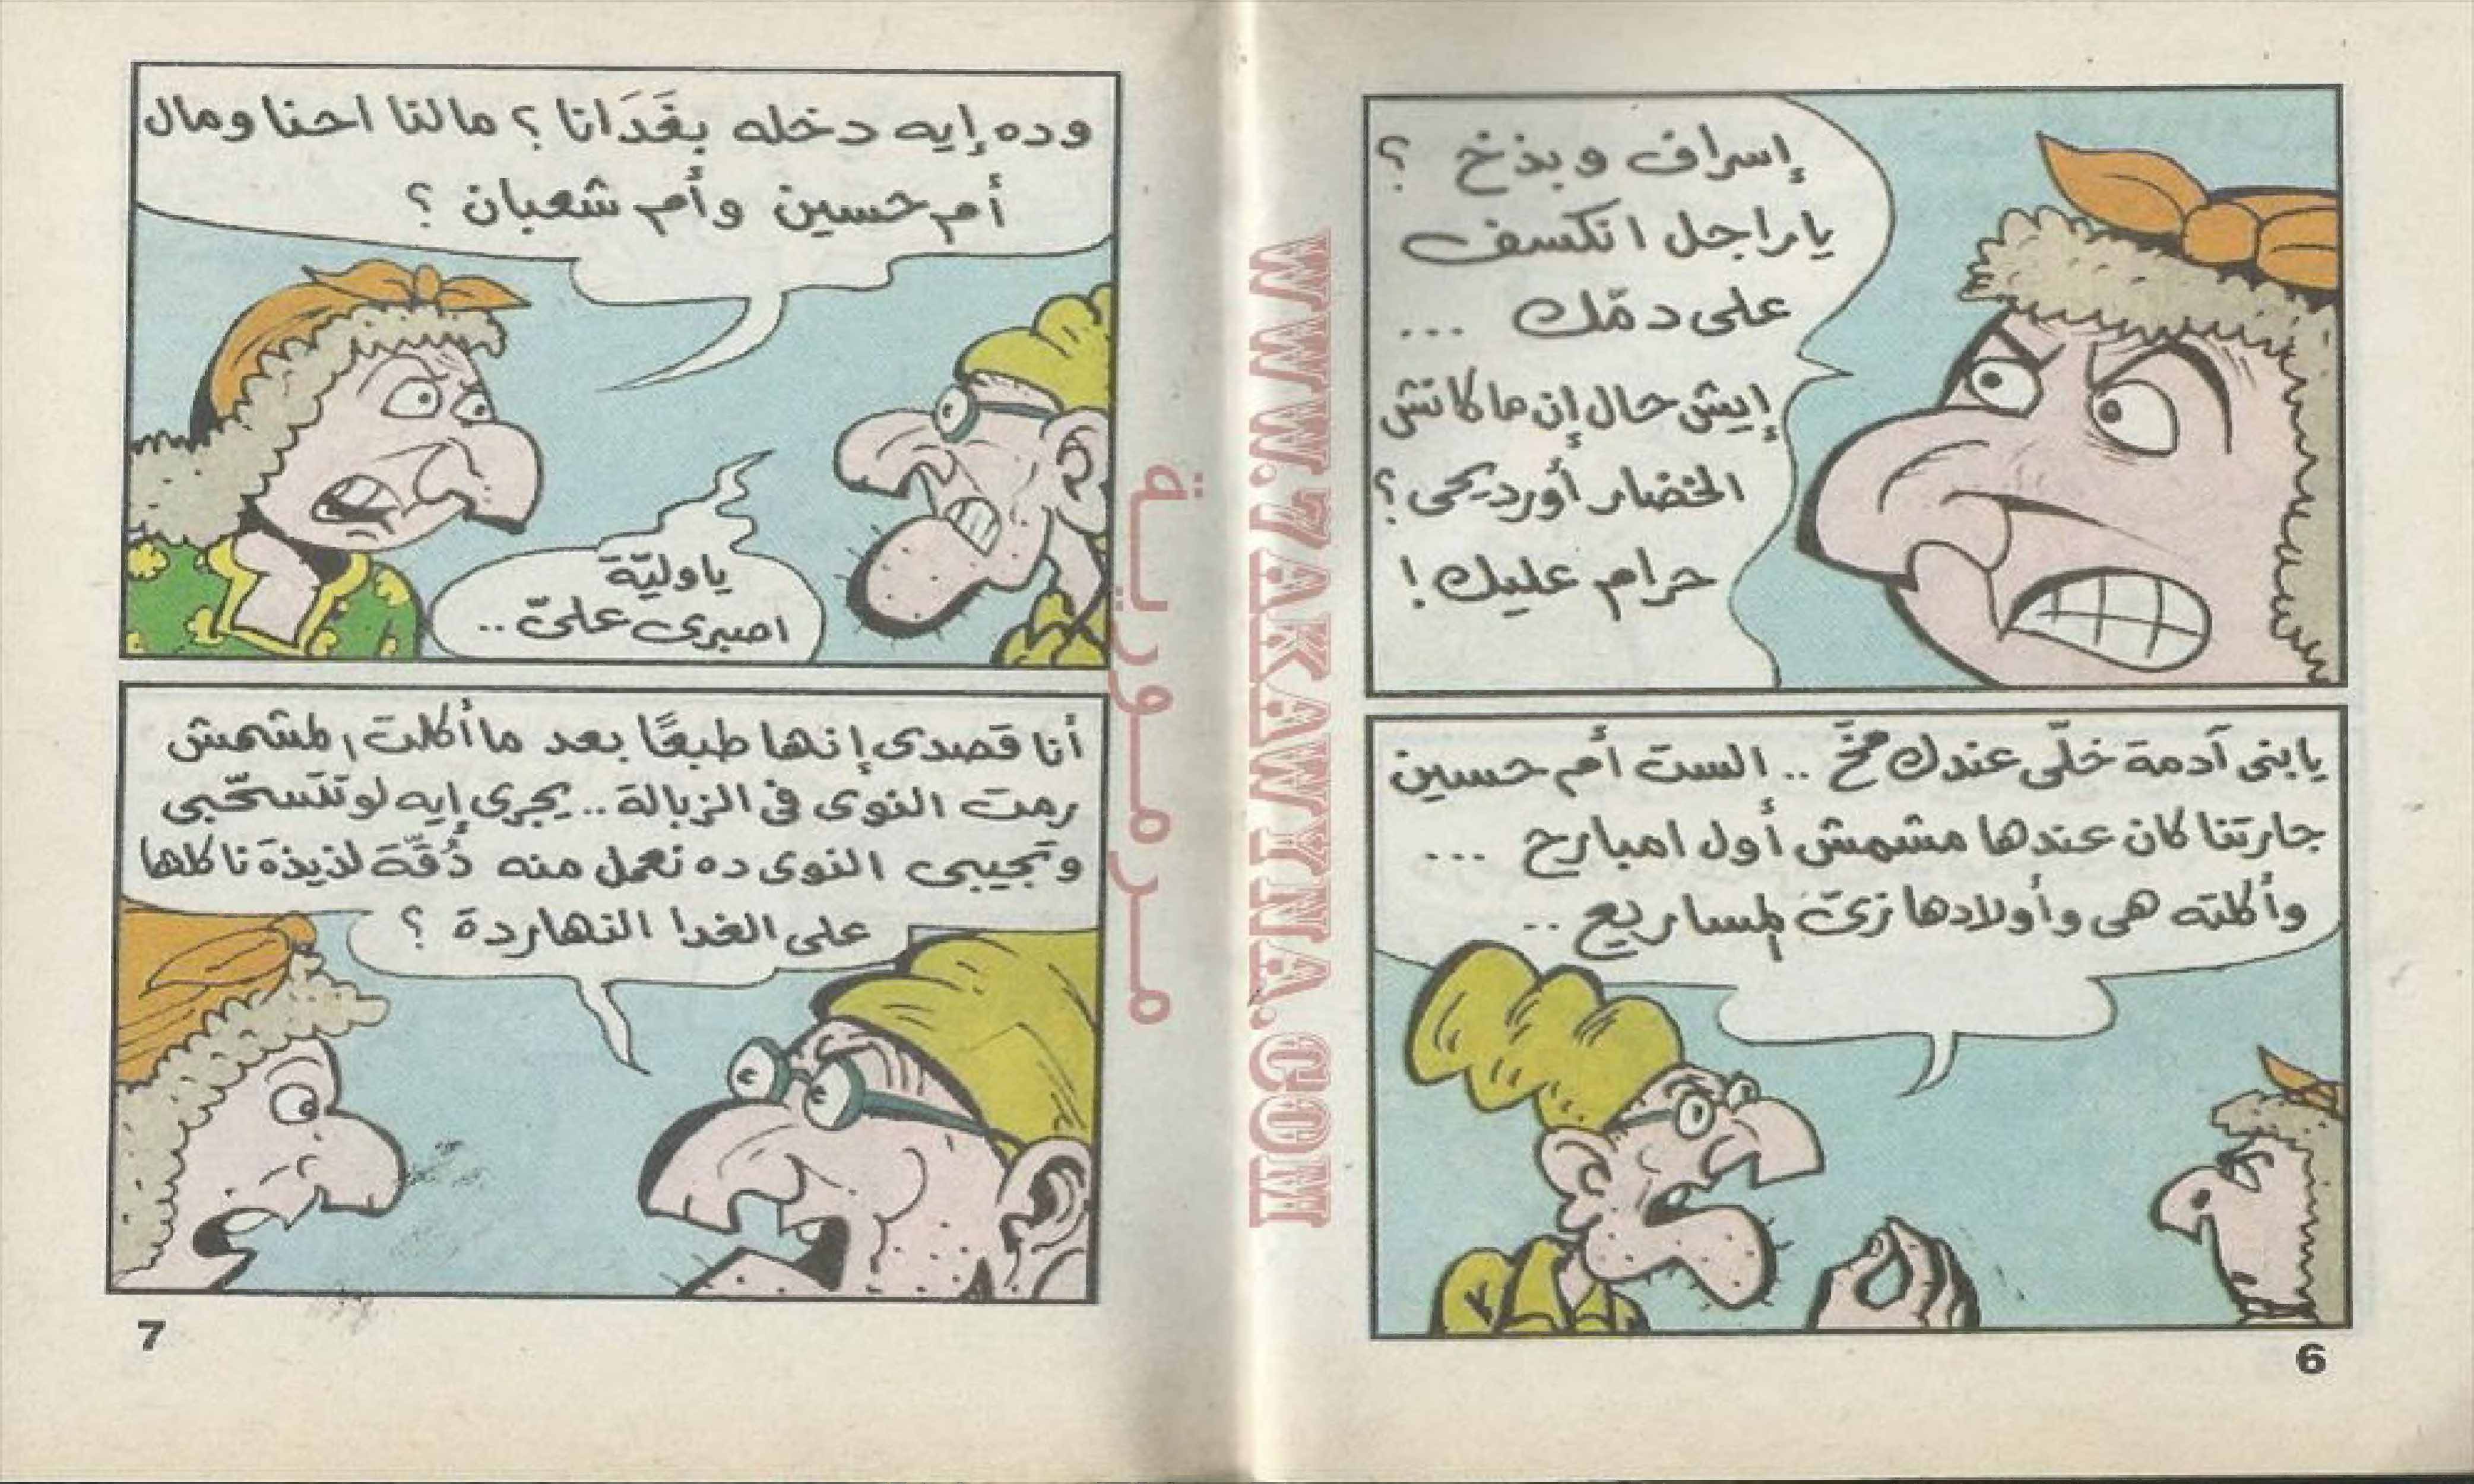 إسراف وبذخ ؟
ياراجل اتكسف
على دمّك ...
إيش حال إن ما كانش
الخضار أورديحى ؟
حرام عليك !
يابنى آدمة خلّى عندك مخّ .. الست أم حسين
جارتنا كان عندها مشمش أول امبارح ...
وأكلته هى وأولادها زىّ المساريع ..
6
وده إيه دخله بغَدَانا ؟ مالنا احنا ومال
أم حسين وأم شعبان ؟
ياوليّة
اصبرى علىّ ..
أنا قصدى إنها طبعًا بعد ما أكلت المشمش
رمت النوى فى الزبالة .. يجرى إيه لو تتسحّبى
وتجيبى النوى ده نعمل منه دُقّة لذيذة ناكلها
على الغدا النهاردة ؟
7
مدرمورية
WWW.ZAKAWYINA.COM